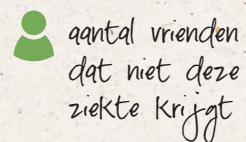 aantal vrienden
dat niet deze
ziekte krijgt